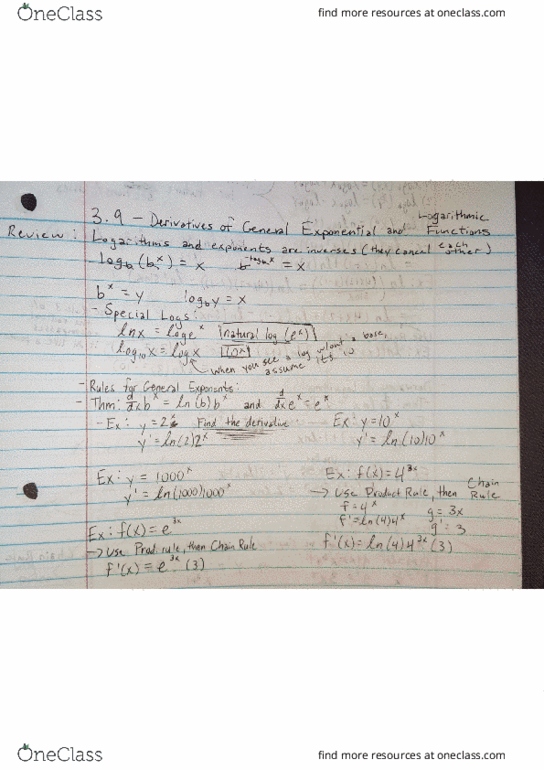 OneClass
find more resources at oneclass.com
3.9 - Derivatives of General Exponential and Logarithmic Functions
Review: Logarithms and exponents are inverses (they cancel each other)
log_b (b^x) = x    b^{log_b x} = x
b^x = y    log_b y = x
- Special Logs:
lnx = log_e x    natural log (e^x)
log_10 x = log x    10^x
when you see a log w/out a base, assume it's 10
- Rules for General Exponents:
- Thm: d/dx b^x = ln(b) b^x and d/dx e^x = e^x
- Ex: y = 2^x Find the derivative
y' = ln(2)2^x
Ex: y = 10^x
y' = ln(10)10^x
Ex: y = 1000^x
y' = ln(1000)1000^x
Ex: f(x) = 4^{3x}
→ Use Product Rule, then Chain Rule
f = 4^x    g = 3x
f' = ln(4)4^x    g' = 3
f'(x) = ln(4)4^{3x} (3)
Ex: f(x) = e^{3x}
→ Use Prod. rule, then Chain Rule
f'(x) = e^{3x} (3)
OneClass
find more resources at oneclass.com